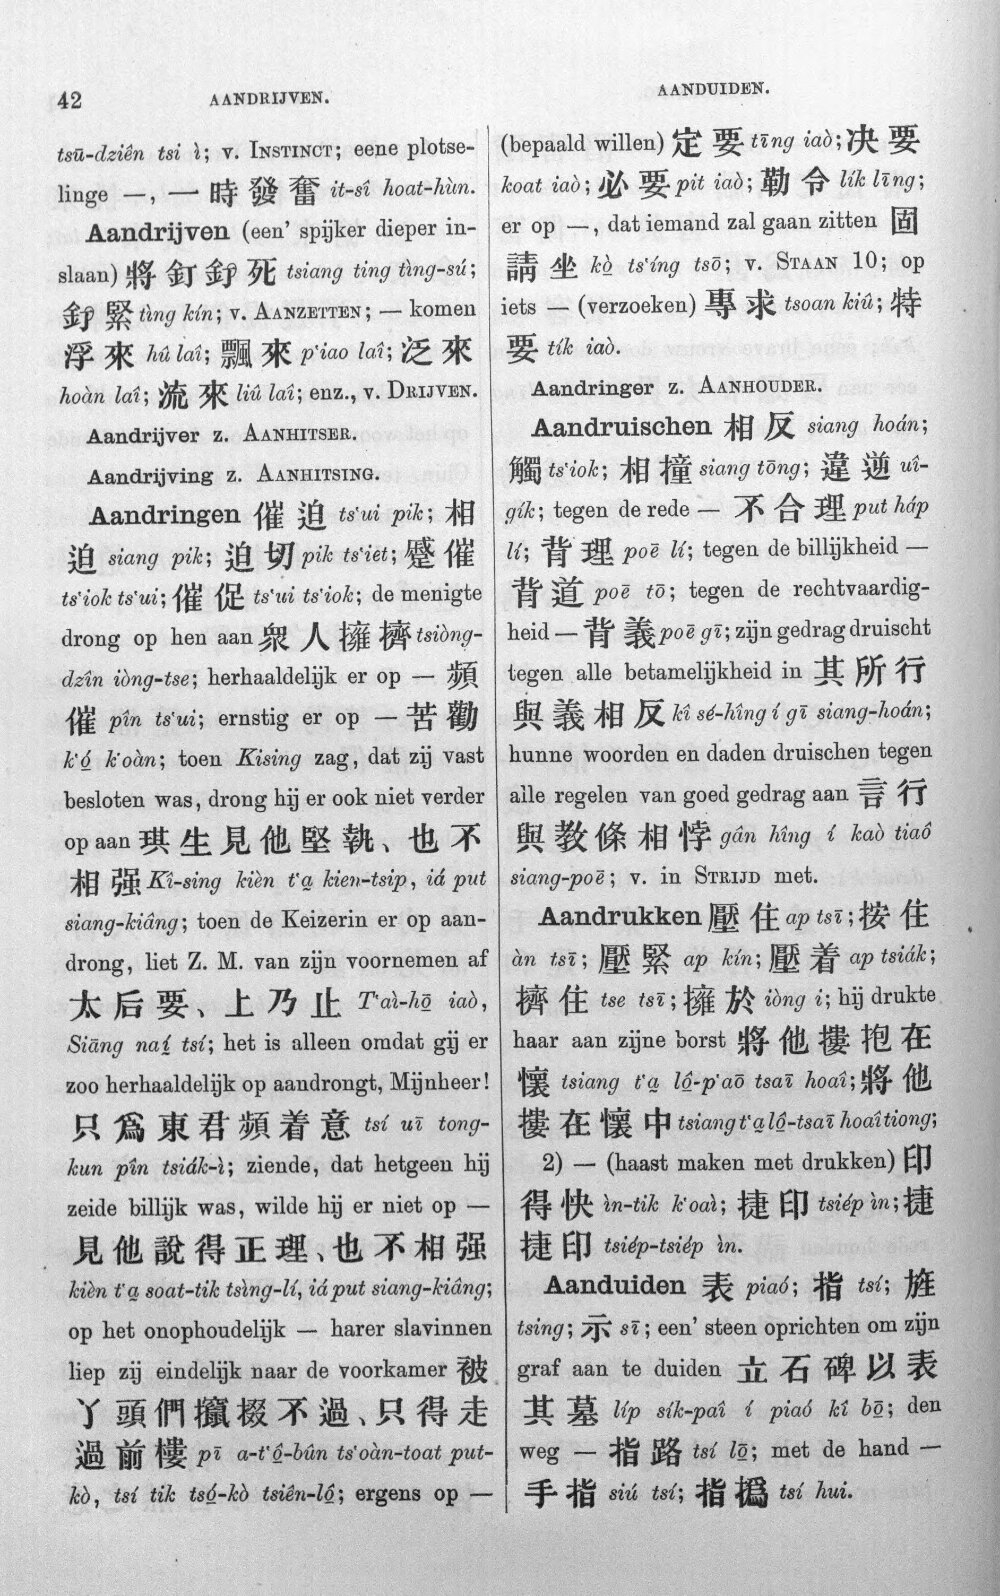 42 AANDRIJVEN. AANDUIDEN.
tsū-dziên tsi ì; v. INSTINCT; eene plotse-
linge —, 一時發奮 it-sî hoat-hùn.
Aandrijven (een' spijker dieper in-
slaan) 將釘釘死 tsiang ting tìng-sú;
緊 tìng kín; v. AANZETTEN; — komen
浮來 hû laî; 飄來 p‘iao laî; 泛來
hoàn laî; 流來 liû laî; enz., v. DRIJVEN.
Aandrijver z. AANHITSER.
Aandrijving z. AANHITSING.
Aandringen 催迫 ts‘ui pik; 相
迫 siang pik; 迫切 pik ts‘iet; 蹙催
ts‘iok ts‘ui; 催促 ts‘ui ts‘iok; de menigte
drong op hen aan 衆人擁擠 tsiòng-
dzîn iòng-tse; herhaaldelijk er op — 頻
催 pîn ts‘ui; ernstig er op — 苦勸
k‘ó̤ k‘oàn; toen Kising zag, dat zij vast
besloten was, drong hij er ook niet verder
op aan 琪生見他堅執、也不
相强 Kî-sing kièn t‘a̤ kien-tsip, iá put
siang-kiâng; toen de Keizerin er op aan-
drong, liet Z. M. van zijn voornemen af
太后要、上乃止 T‘aì-hō̤ iaò,
Siāng naí̤ tsí; het is alleen omdat gij er
zoo herhaaldelijk op aandrongt, Mijnheer!
只爲東君頻着意 tsí uī tong-
kun pîn tsiák-ì; ziende, dat hetgeen hij
zeide billijk was, wilde hij er niet op —
見他說得正理、也不相强
kièn t‘a̤ soat-tik tsìng-lí, iá put siang-kiâng;
op het onophoudelijk — harer slavinnen
liep zij eindelijk naar de voorkamer 被
丫頭們攛掇不過、只得走
過前樓 pī a-t‘ô̤-bûn ts‘oàn-toat put-
kò, tsí tik tsó̤-kò tsiên-lô̤; ergens op —
(bepaald willen) 定要 tīng iaò; 决要
koat iaò; 必要 pit iaò; 勒令 lík līng;
er op —, dat iemand zal gaan zitten 固
請坐 kò̤ ts‘íng tsō; v. STAAN 10; op
iets — (verzoeken) 專求 tsoan kiû; 特
要 tík iaò.
Aandringer z. AANHOUDER.
Aandruischen 相反 siang hoán;
觸 ts‘iok; 相撞 siang tōng; 違逆 uî-
gík; tegen de rede — 不合理 put háp
lí; 背理 poē lí; tegen de billijkheid —
背道 poē tō; tegen de rechtvaardig-
heid — 背義 poē gī; zijn gedrag druischt
tegen alle betamelijkheid in 其所行
與義相反 kî sé-hîng í gī siang-hoán;
hunne woorden en daden druischen tegen
alle regelen van goed gedrag aan 言行
與教條相悖 gân hîng í kaò tiaô
siang-poē; v. in STRIJD met.
Aandrukken 壓住 ap tsī; 按住
àn tsī; 壓緊 ap kín; 壓着 ap tsiák;
擠住 tse tsī; 擁於 iòng i; hij drukte
haar aan zijne borst 將他摟抱在
懷 tsiang t‘a̤ lô̤-p‘aō tsaī hoaî; 將他
摟在懷中 tsiang t‘a̤ lô̤-tsaī hoaî tiong;
2) — (haast maken met drukken) 印
得快 ìn-tik k‘oaì; 捷印 tsiép ìn; 捷
捷印 tsiép-tsiép ìn.
Aanduiden 表 piaó; 指 tsí; 旌
tsing; 示 sī; een' steen oprichten om zijn
graf aan te duiden 立石碑以表
其墓 líp sík-paî í piaó kî bō̤; den
weg — 指路 tsí lō̤; met de hand —
手指 siú tsí; 指撝 tsí hui.